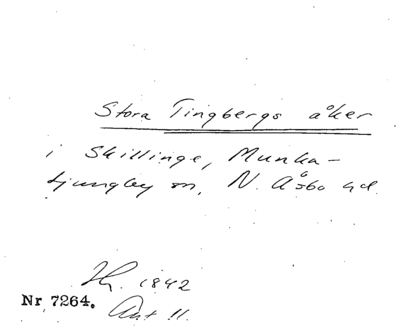 Stora Tingbergs åker
i Skillinge, Munka-
Ljungby sn, N. Åsbo hd.
Hy. 1842
Nr 7264. Ant 11.